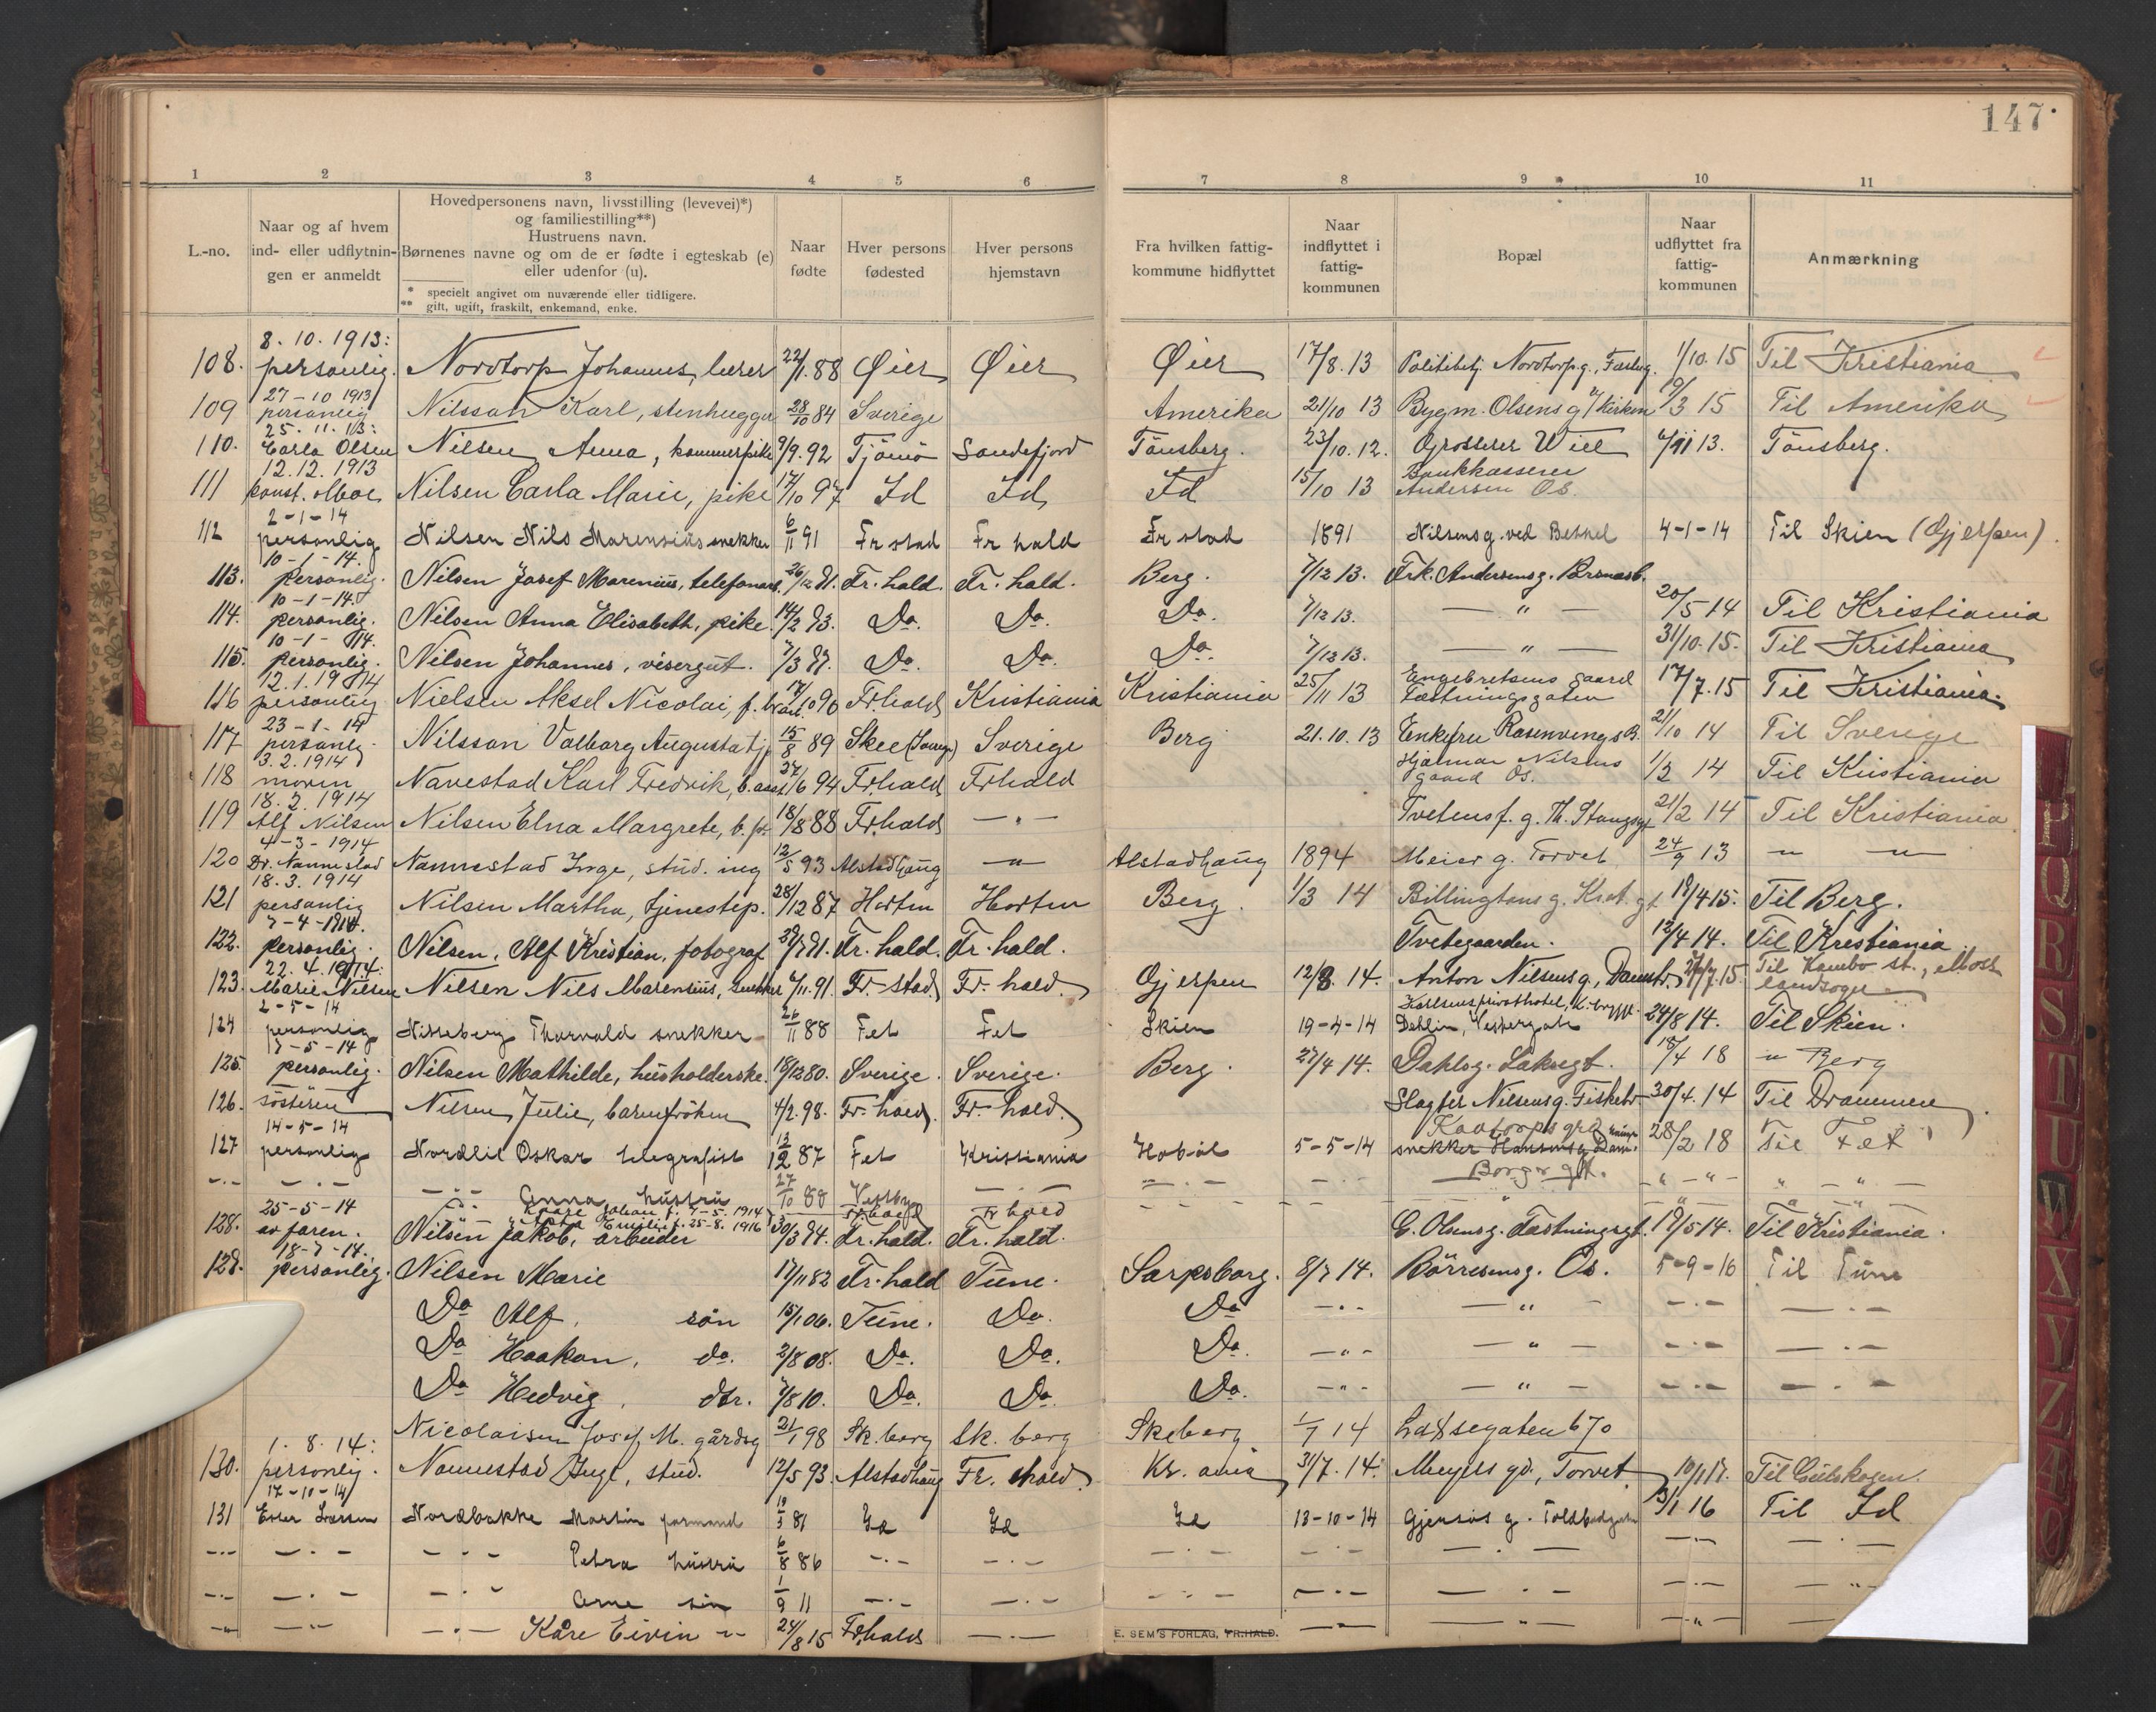 147
1 2 3 4 5 6 7 8 9 10 11
L.-no.
Naar og af hvem
ind- eller udflytnin-
gen er anmeldt
Hovedpersonens navn, livsstilling (levevei)*)
og familiestilling**)
Hustruens navn.
Børnenes navne og om de er fødte i egteskab (e)
eller udenfor (u).
* specielt angivet om nuværende eller tidligere.
** gift, ugift, fraskilt, enkemand, enke.
Naar
fødte
Hver persons
fødested
Hver persons
hjemstavn
Fra hvilken fattig-
kommune hidflyttet
Naar
indflyttet i
fattig-
kommunen
Bopæl
Naar
udflyttet fra
fattig-
kommunen
Anmærkning
8.10.1913:
108. personlig. Nordtorp Johannes, lærer 22/1.88 Øier Øier Øier 17/8.13 Politibetj. Nordtorpg., 1/10.15 Til Kristiania
27-10 1913
109 personlig Nilsson Karl, stenhugger 28/10 84 Sverige Amerika 21/10 13 Bygm. Olsens g v/ Kirken 9/3 15 Til Amerika
25.11.13:
110. Carla Olsen Nilsen Anna, kammerpike 9/9.92 Tjömö Sandefjord Tönsberg. 23/10.12. Grosserer Wiel 4/11 13. Tönsberg.
12.12.1913
111 konst. Moe Nilsen Carla Marie, pike 17/10 97 Id Id Id 15/10 13 Bankkasserer
Andersen Os.
2-1-14
112 personlig Nilsen Nils Marensius snekker 6/11 91 Fr stad Fr hald Fr stad 1891 Nilsens g. ved Bethel 4-1-14 Til Skien (Gjerpen).
10-1-14.
113. personlig. Nilsen Josef Marenius, telefonarb. 26/12 91. Fr. hald. Fr. hald. Berg. 7/12 13. Frk. Andersens g.
10-1-14.
114. personlig. Nilsen Anna Elisabeth, pike. 14/2 93. Do. Do. Do. 7/12 13. — " — 20/5 14 Til Kristiania
10-1-14.
115. personlig. Nilsen Johannes, visergut. 7/3 97. Do. Do. Do. 7/12 13. — " — 31/10.15. Til Kristiania
12.1.1914
116 personlig Nielsen Aksel Nicolai, f. 17/10 96 Fr.hald Kristiania Kristiania 25/11 13 Engebretsens gaard
Fæstningsgaten 17/7.15 Til Kristiania.
23-1-14
117 personlig. Nilsson Valborg Augusta tj. 15/8 89 Skee (Sverige) Sverige Berg 21.10.13 Enkefru Rosenvinges B. 21/10 14 Til Sverige
3.2.1914
118 moren Navestad Karl Fredrik, b.ass. 27/6 94 Fr.hald Frhald Hjalmar Nilsens
gaard Os. 1/2 14 Til Kristiania
18.2.1914
119 Alf Nilsen Nilsen Elna Margrete, b. fr. 18/8 88 Fr.hald — " — Tvetens f. g. Th. Stangsgt 21/2 14 Til Kristiania
4-3-1914
120 Dr. Nannestad Nannestad Inge, stud. ing 12/5 93 Alstadhaug — " — Alstadhaug 1894 Meier g. Torvet 24/9 13 — " —
18.3.1914
121 personlig Nilsen Martha, tjenestep. 28/12 87 Horten Horten Berg. 1/3 14 Billingtons g. 19/4 15. Til Berg.
7-4-1914.
122. personlig. Nilsen, Alf Kristian, fotograf 91. Fr. hald. Fr. hald. Tvetegaarden. 12/4 14. Til Kristiania.
22.4.1914.
123. Marie Nilsen Nilsen Nils Marensius, snekker 6/11.91. Fr. stad Fr. hald. Gjerpen 12/3.14. Anton Nilsens g., Damstr. 27/7.15. Til Kambo st., Moss
landsogn
2-5-14
124 personlig Nitteberg Thorvald snekker 26/11 88 Fet Fet Skien 19-4-14 Karlsens privathotel,
Dahlin, Vestergate 24/8 14. Til Skien.
7-5-14
125. personlig. Nilsen Mathilde, husholderske. 18/12 80. Sverige. Sverige. Berg. 27/4 14. Dahlsg. Laksegt. 18/4 18 " Berg
126. söstren Nilsen, Julie, barnefröken 4/2.98. Fr. hald. Fr. hald. Slagter Nilsens g. Fiskebr. 30/4.14 Til Drammen.
14-5-14
127 personlig Nordlie Oskar telegrafist 13/12 87 Fet Kristiania Hobøl 5-5-14 snekker Hansens g. Dam. 28/2 18 Til Fet
Borgergt.
— " — Anna hustru 27/10 88 Vestby — " —
Kaare Johan f. 7-5-1914 Fr.hald Fr hald
25-5-14 Emilie f. 25-8-1916
128. av faren. Nilsen Jakob, arbeider 30/3 94. Fr. hald. Fr. hald. C. Olsens g. Fæstningsgt. 19/5 14. Til Kristiania.
18-7-14.
129. personlig. Nilsen Marie 17/11 82 Fr. hald Tune. Sarpsborg. 8/7 14. Börresens g. Os. 5-9-16 Til Tune
Do Alf, sön 15/1 06. Tune. Do. Do — " — — " — — " — — " —
Do Haakon, do. 2/8 08. Do. Do. Do. — " — — " — — " — — " —
Do Hedvig, dtr. 7/8 10. Do. Do. Do. — " — — " — — " — — " —
Nicolaisen Josef M. gårdsg 21/1 98 Sk.berg Sk. berg Skeberg 1/7 14 Laksegaten 670
1.8.14:
130. personlig. Nannestad Inge, stud. 12/5 93. Alstadhaug Fr. hald. Kr. ania 31/7.14. Meyers gd., Torvet 10/1 17. Til Gulskogen.
17-10-14
131 Ester Larsen Nordbakke Martin formand 19/3 81 Id Id Id 13-10-14 Gjensøs g. Toldbodgaten 3/1 16 Til Id
— " — — " — Petra hustru 6/8 86 — " — — " —
— " — — " — Arne sön 1/9 11 — " — — " —
— " — — " — Kåre Eivin — " — 24/8 15 Fr.hald — " —
E. SEM'S FORLAG, FR.HALD.
P
Q
R
S
T
U
W
X
Y
Z
Æ
Ø